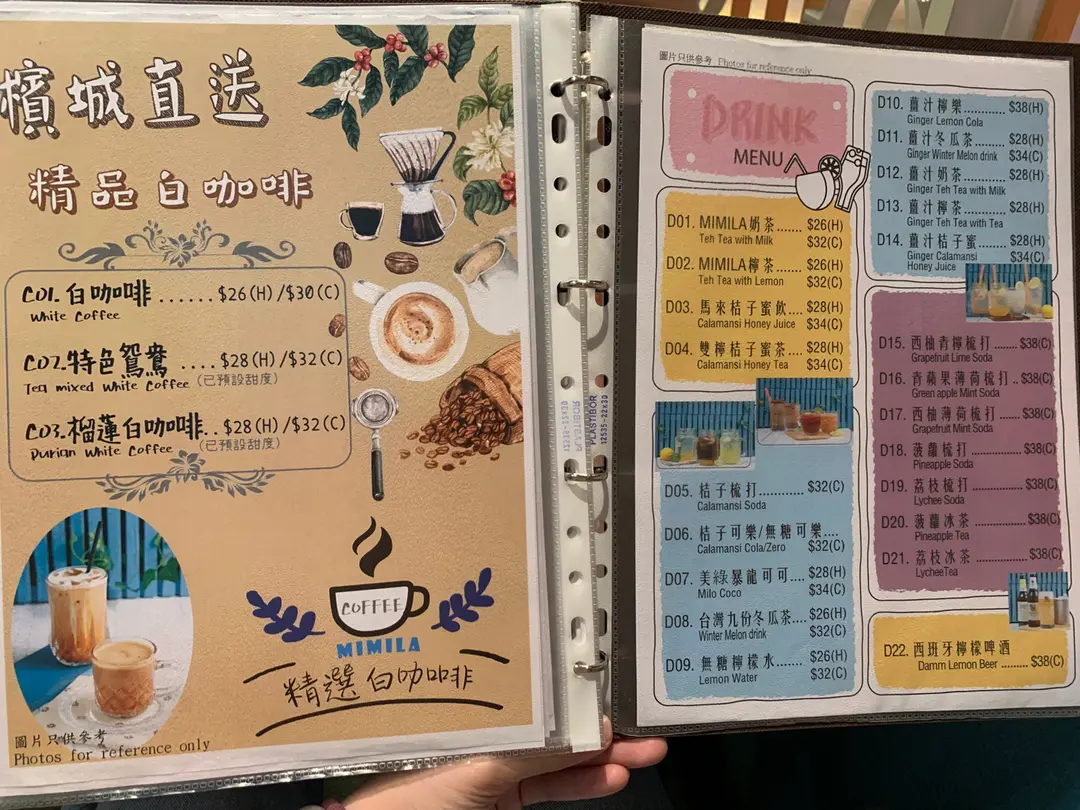 檳城直送
精品白咖啡
C01. 白咖啡 ...... $26(H) /$30(C)
White Coffee
C02. 特色鴛鴦 .... $28(H) /$32(C)
Tea mixed White Coffee (已預設甜度)
C03. 榴蓮白咖啡.. $28(H) /$32(C)
Durian White Coffee (已預設甜度)
COFFEE
MIMILA
精選白咖啡
圖片只供參考
Photos for reference only
PLASTIBOR
12535-22x30
圖片只供參考 Photos for reference only
DRINK
MENU
D01. MIMILA奶茶........ $26(H)
Teh Tea with Milk $32(C)
D02. MIMILA檸茶....... $26(H)
Teh Tea with Lemon $32(C)
D03. 馬來桔子蜜飲.... $28(H)
Calamansi Honey Juice $34(C)
D04. 雙檸桔子蜜茶.... $28(H)
Calamansi Honey Tea $34(C)
D05. 桔子梳打............ $32(C)
Calamansi Soda
D06. 桔子可樂/無糖可樂....
Calamansi Cola/Zero $32(C)
D07. 美綠暴龍可可.... $28(H)
Milo Coco $34(C)
D08. 台灣九份冬瓜茶.... $26(H)
Winter Melon drink $32(C)
D09. 無糖檸檬水....... $26(H)
Lemon Water $32(C)
D10. 薑汁檸樂............ $38(H)
Ginger Lemon Cola
D11. 薑汁冬瓜茶......... $28(H)
Ginger Winter Melon drink $34(C)
D12. 薑汁奶茶............ $28(H)
Ginger Teh Tea with Milk
D13. 薑汁檸茶............ $28(H)
Ginger Teh Tea with Tea
D14. 薑汁桔子蜜........ $28(H)
Ginger Calamansi $34(C)
Honey Juice
D15. 西柚青檸梳打....... $38(C)
Grapefruit Lime Soda
D16. 青蘋果薄荷梳打.. $38(C)
Green apple Mint Soda
D17. 西柚薄荷梳打....... $38(C)
Grapefruit Mint Soda
D18. 菠蘿梳打............. $38(C)
Pineapple Soda
D19. 荔枝梳打............. $38(C)
Lychee Soda
D20. 菠蘿冰茶............. $38(C)
Pineapple Tea
D21. 荔枝冰茶............. $38(C)
LycheeTea
D22. 西班牙檸檬啤酒
Damm Lemon Beer ........ $38(C)